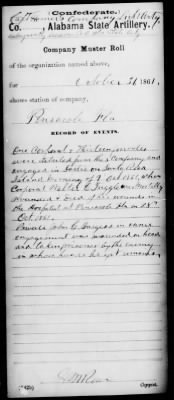 Confederate.
Co. , Alabama State Artillery.
Company Muster Roll
of the organization named above,
for October 31, 1861.
shows station of company,
Pensacola Fla
RECORD OF EVENTS.
One Corporal & Thirteen privates
were detailed from the Company and
engaged in battle on Santa Rosa
Island morning of 9 Oct 1861, when
Corporal Walter C. was Mortally
Wounded & died of his wounds in
the Hospital at Pensacola Fla on
Oct 1861.
Private John C. Burgess in same
engagement was wounded in head
and taken prisoner by the enemy
in whose hands he yet remains.
Copyist.